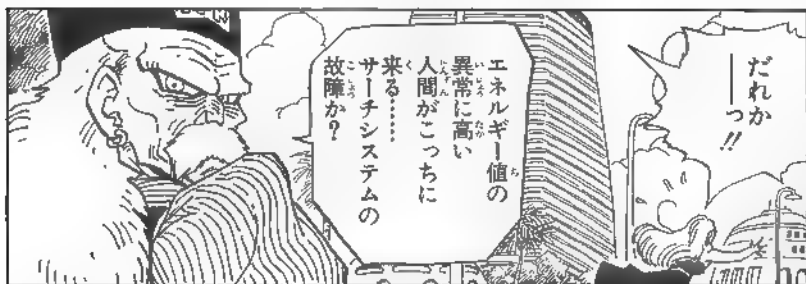 だれか
――っ!!
エネルギー値の
異常に高い
人間がこっちに
来る……
サーチシステムの
故障か?